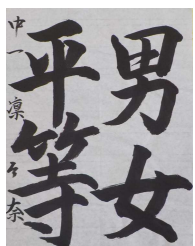 男女
平等
中一 凜々奈